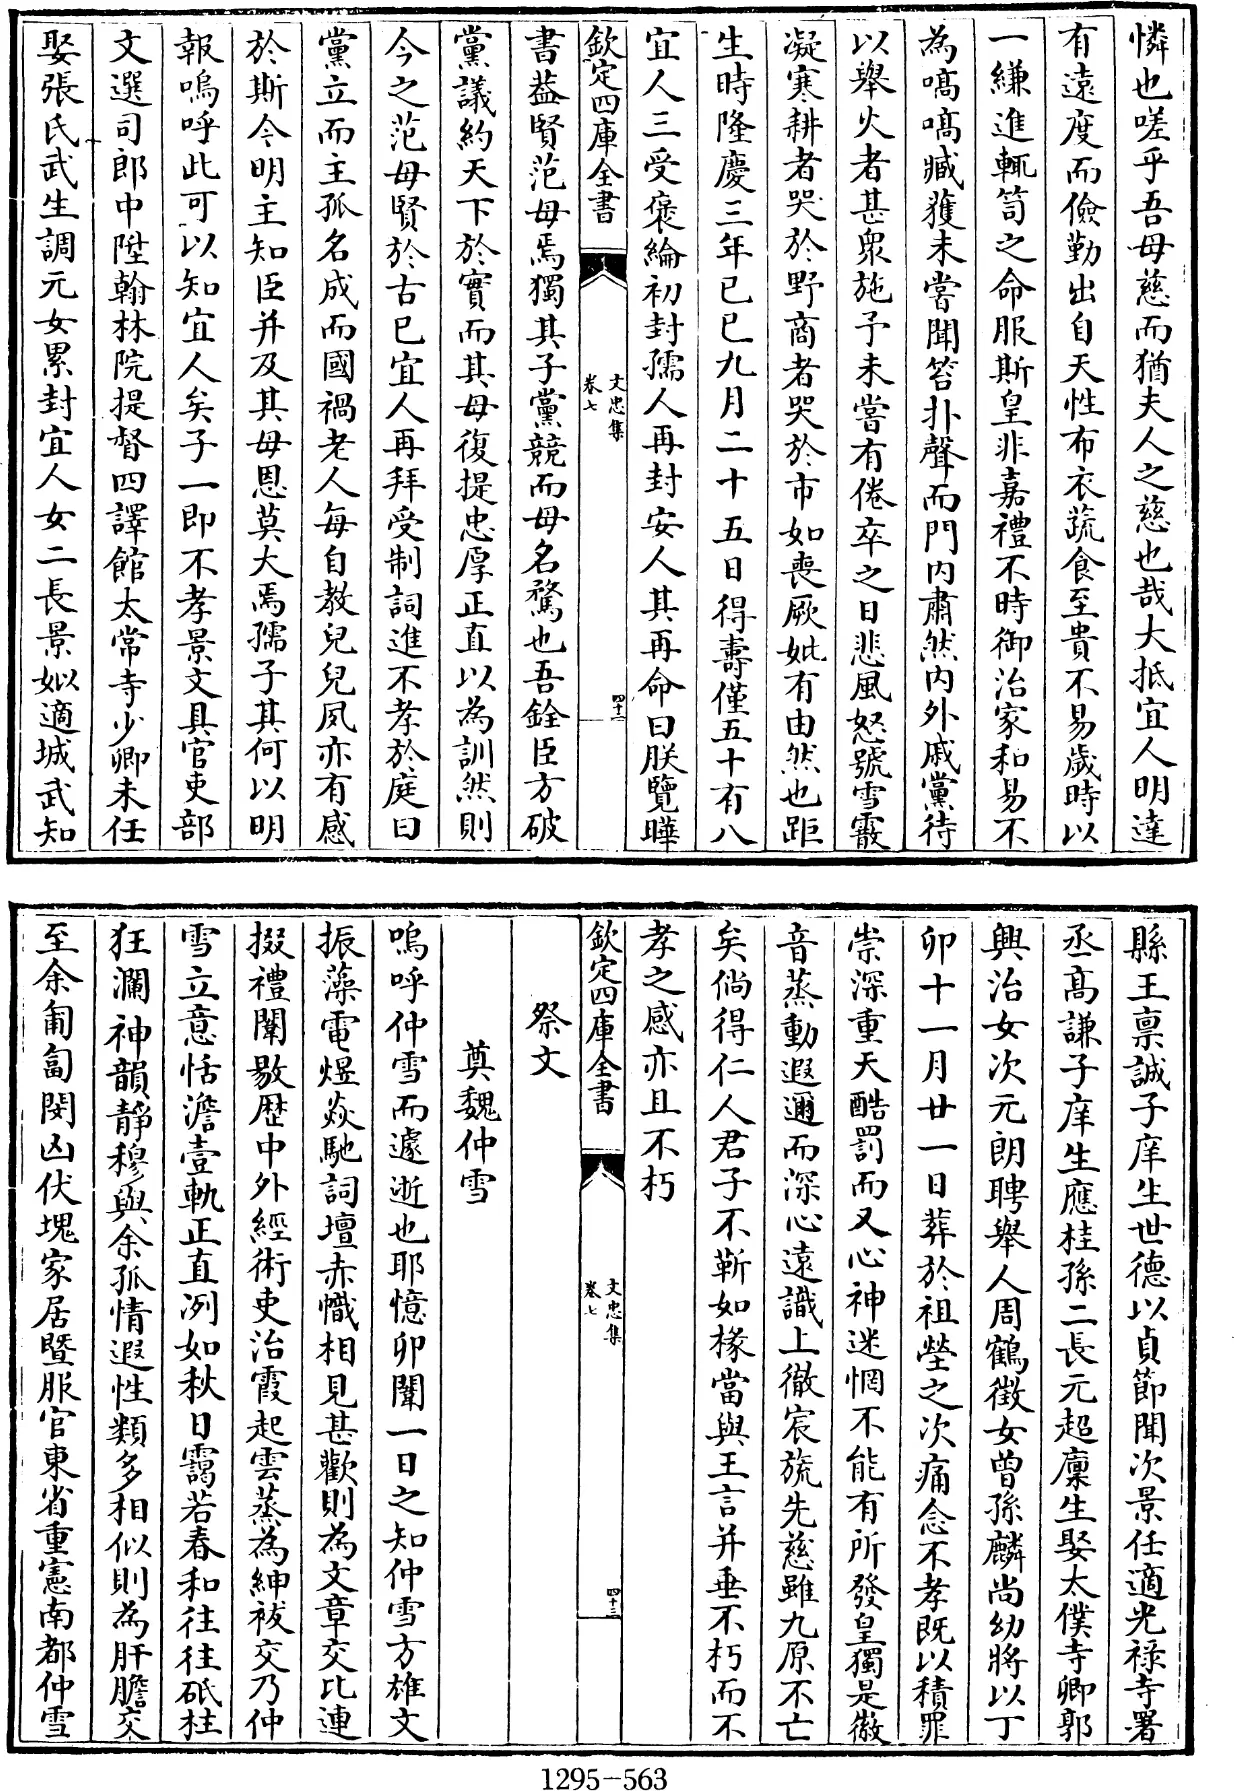 憐也嗟乎吾母慈而猶夫人之慈也哉大抵宜人明達
有遠度而儉勤出自天性布衣蔬食至貴不易歲時以
一縑進輒笥之命服斯皇非嘉禮不時御治家和易不
為嗃嗃臧獲未嘗聞笞扑聲而門内肅然内外戚黨待
以舉火者甚衆施予未嘗有倦卒之日悲風怒號雪霰
凝寒耕者哭於野商者哭於市如喪厥妣有由然也距
生時隆慶三年己巳九月二十五日得壽僅五十有八
宜人三受褒綸初封孺人再封安人其再命曰朕覽曄
欽定四庫全書
文忠集
卷七
四十二
書葢賢范母焉獨其子黨競而母名騖也吾銓臣方破
黨議約天下於實而其母復提忠厚正直以為訓然則
今之范母賢於古已宜人再拜受制詞進不孝於庭曰
黨立而主孤名成而國禍老人每自教兒兒夙亦有感
於斯今明主知臣并及其母恩莫大焉孺子其何以明
報嗚呼此可以知宜人矣子一即不孝景文具官吏部
文選司郎中陞翰林院提督四譯館太常寺少卿未任
娶張氏武生調元女累封宜人女二長景姒適城武知
縣王禀誠子庠生世德以貞節聞次景任適光祿寺署
丞高謙子庠生應桂孫二長元超廩生娶太僕寺卿郭
興治女次元朗聘舉人周鶴徵女曽孫麟尚幼將以丁
卯十一月廿一日葬於祖塋之次痛念不孝既以積罪
崇深重天酷罰而又心神迷惘不能有所發皇獨是徽
音蒸動遐邇而深心遠識上徹宸旒先慈雖九原不亡
矣倘得仁人君子不靳如椽當與王言并垂不朽而不
孝之感亦且不朽
欽定四庫全書
文忠集
卷七
四十三
祭文
奠魏仲雪
嗚呼仲雪而遽逝也耶憶卯闈一日之知仲雪方雄文
振藻電煜猋馳詞壇赤幟相見甚歡則為文章交比連
掇禮闈敭歴中外經術吏治霞起雲蒸為紳袚交乃仲
雪立意恬澹壹軌正直冽如秋日靄若春和往往砥柱
狂瀾神韻靜穆與余孤情遐性類多相似則為肝膽交
至余匍匐閔凶伏塊家居暨服官東省重憲南都仲雪
1295-563